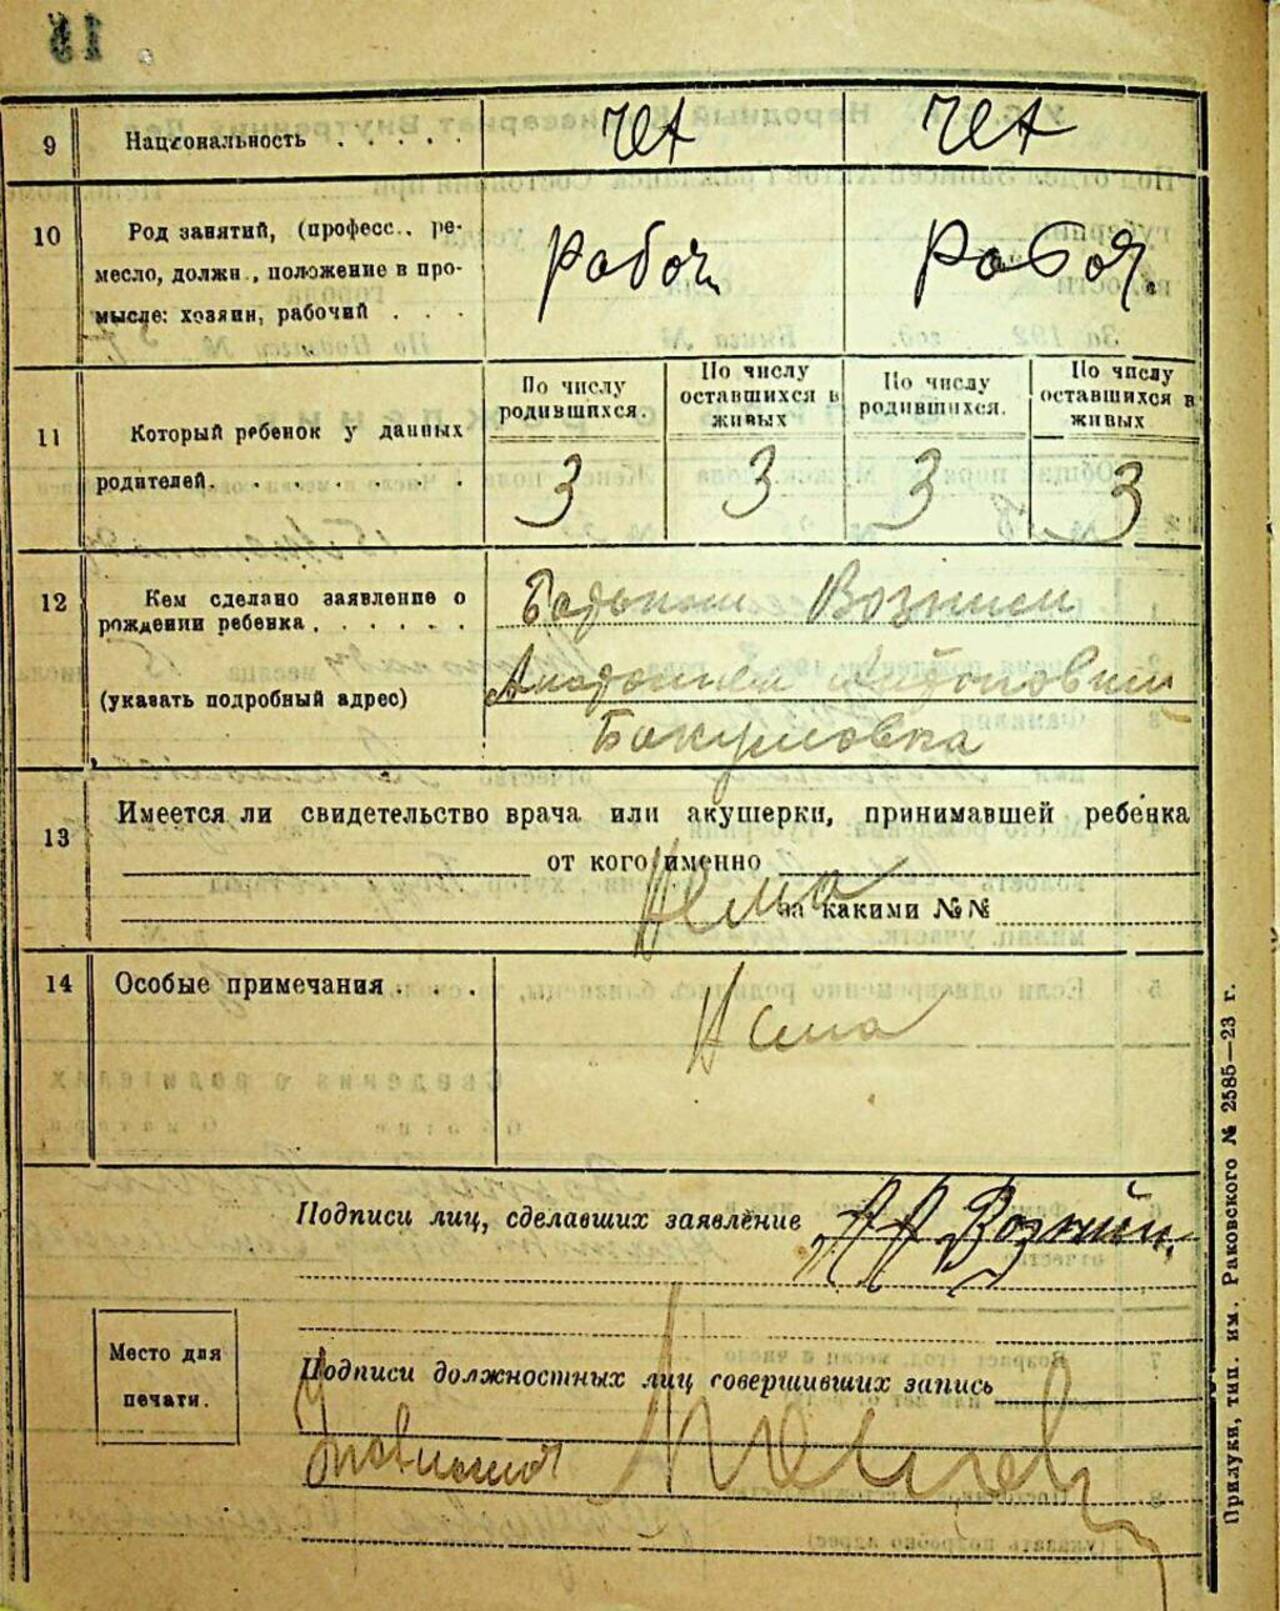 15
9 Национальность . . . . . чех чех
10 Род занятий, (професс., ре-
месло, должн., положение в про-
мысле: хозяин, рабочий . . .
рабоч рабоч.
11 Который ребенок у данных
родителей. . . . . . .
По числу родившихся. По числу оставшихся в живых По числу родившихся. По числу оставшихся в живых
3 3 3 3
12 Кем сделано заявление о
рождении ребенка . . . . . .
(указать подробный адрес)
Батьком Возним
Бакумовка
13 Имеется ли свидетельство врача или акушерки, принимавшей ребенка
от кого именно
Нема
за какими №№
14 Особые примечания . . .
Нема
Подписи лиц, сделавших заявление
Место для
печати.
Подписи должностных лиц совершивших запись
Прилуки, тип. им. Раковского № 2585—23 г.